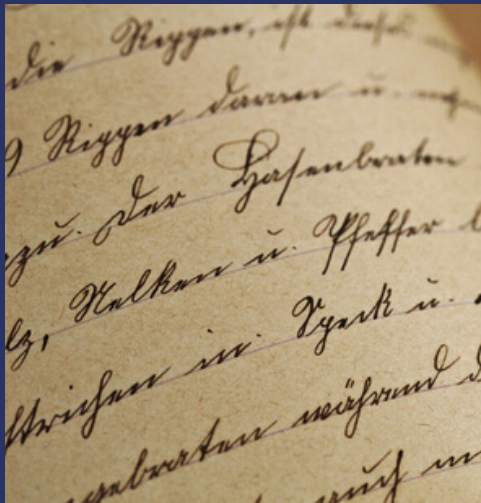 die Rippen, ist
9 Rippen daran u.
zu. Der Hasenbraten
lz, Nelken u. Pfeffer
strichen in. Speck u.
gebraten während d
auch m